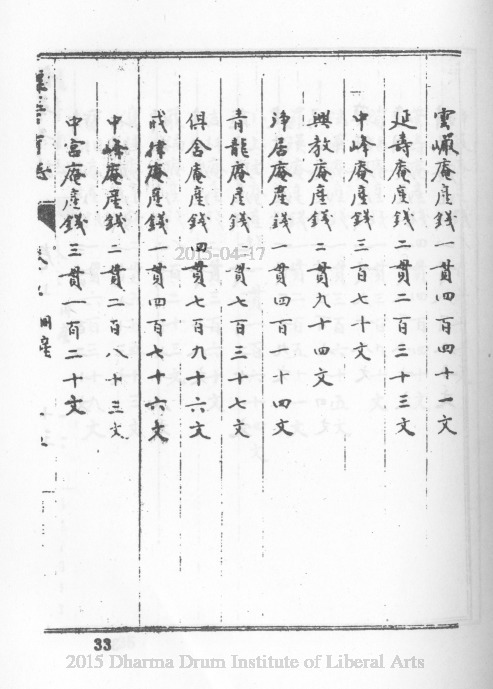 雲巗庵產錢一貫四百四十一文
延壽庵產錢二貫二百三十三文
中峰庵產錢三百七十文
興教庵產錢二貫九十四文
淨居庵產錢一貫四百一十四文
青龍庵產錢一貫七百三十七文
俱舍庵產錢四貫七百九十六文
戒律庵產錢一貫四百七十六文
中峰庵產錢二貫二百八十三文
中富庵產錢三貫一百二十文
田產
2015-04-17
33
2015 Dharma Drum Institute of Liberal Arts